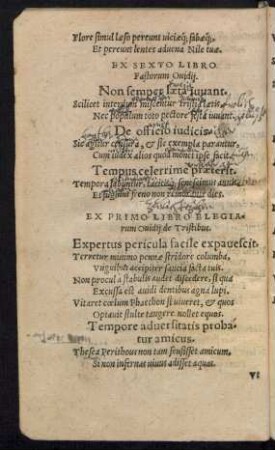 Flore simul læso pereunt uiciæq; fabæq;,
Et pereunt lentes aduena Nile tuæ.
EX SEXTO LIBRO
Fastorum Ouidij.
Non semper læta iuuant.
Scilicet interdum miscentur tristia lætis
Nec populum toto pectore festa iuuant.
De officio iudicis.
Sic agitur censura, & sic exempla parantur,
Cum iudex alios quod monet ipse facit.
Tempus celerrime præterit.
Tempora labuntur, tacitisq; senescimus annis
Et fugiunt freno non remorante dies.
EX PRIMO LIBRO ELEGIA-
rum Ouidij de Tristibus.
Expertus pericula facile expauescit.
Terretur minimo pennæ stridore columba,
Vnguibus accipiter saucia facta tuis.
Non procul a stabulis audet discedere, si qua
Excussa est auidi dentibus agna lupi.
Vitaret cœlum Phaethon si uiueret, & quos
Optauit stulte tangere nollet equos.
Tempore aduersitatis proba-
tur amicus.
Thesea Perithous non tam sensisset amicum,
Si non infernas uiuus adisset aquas.